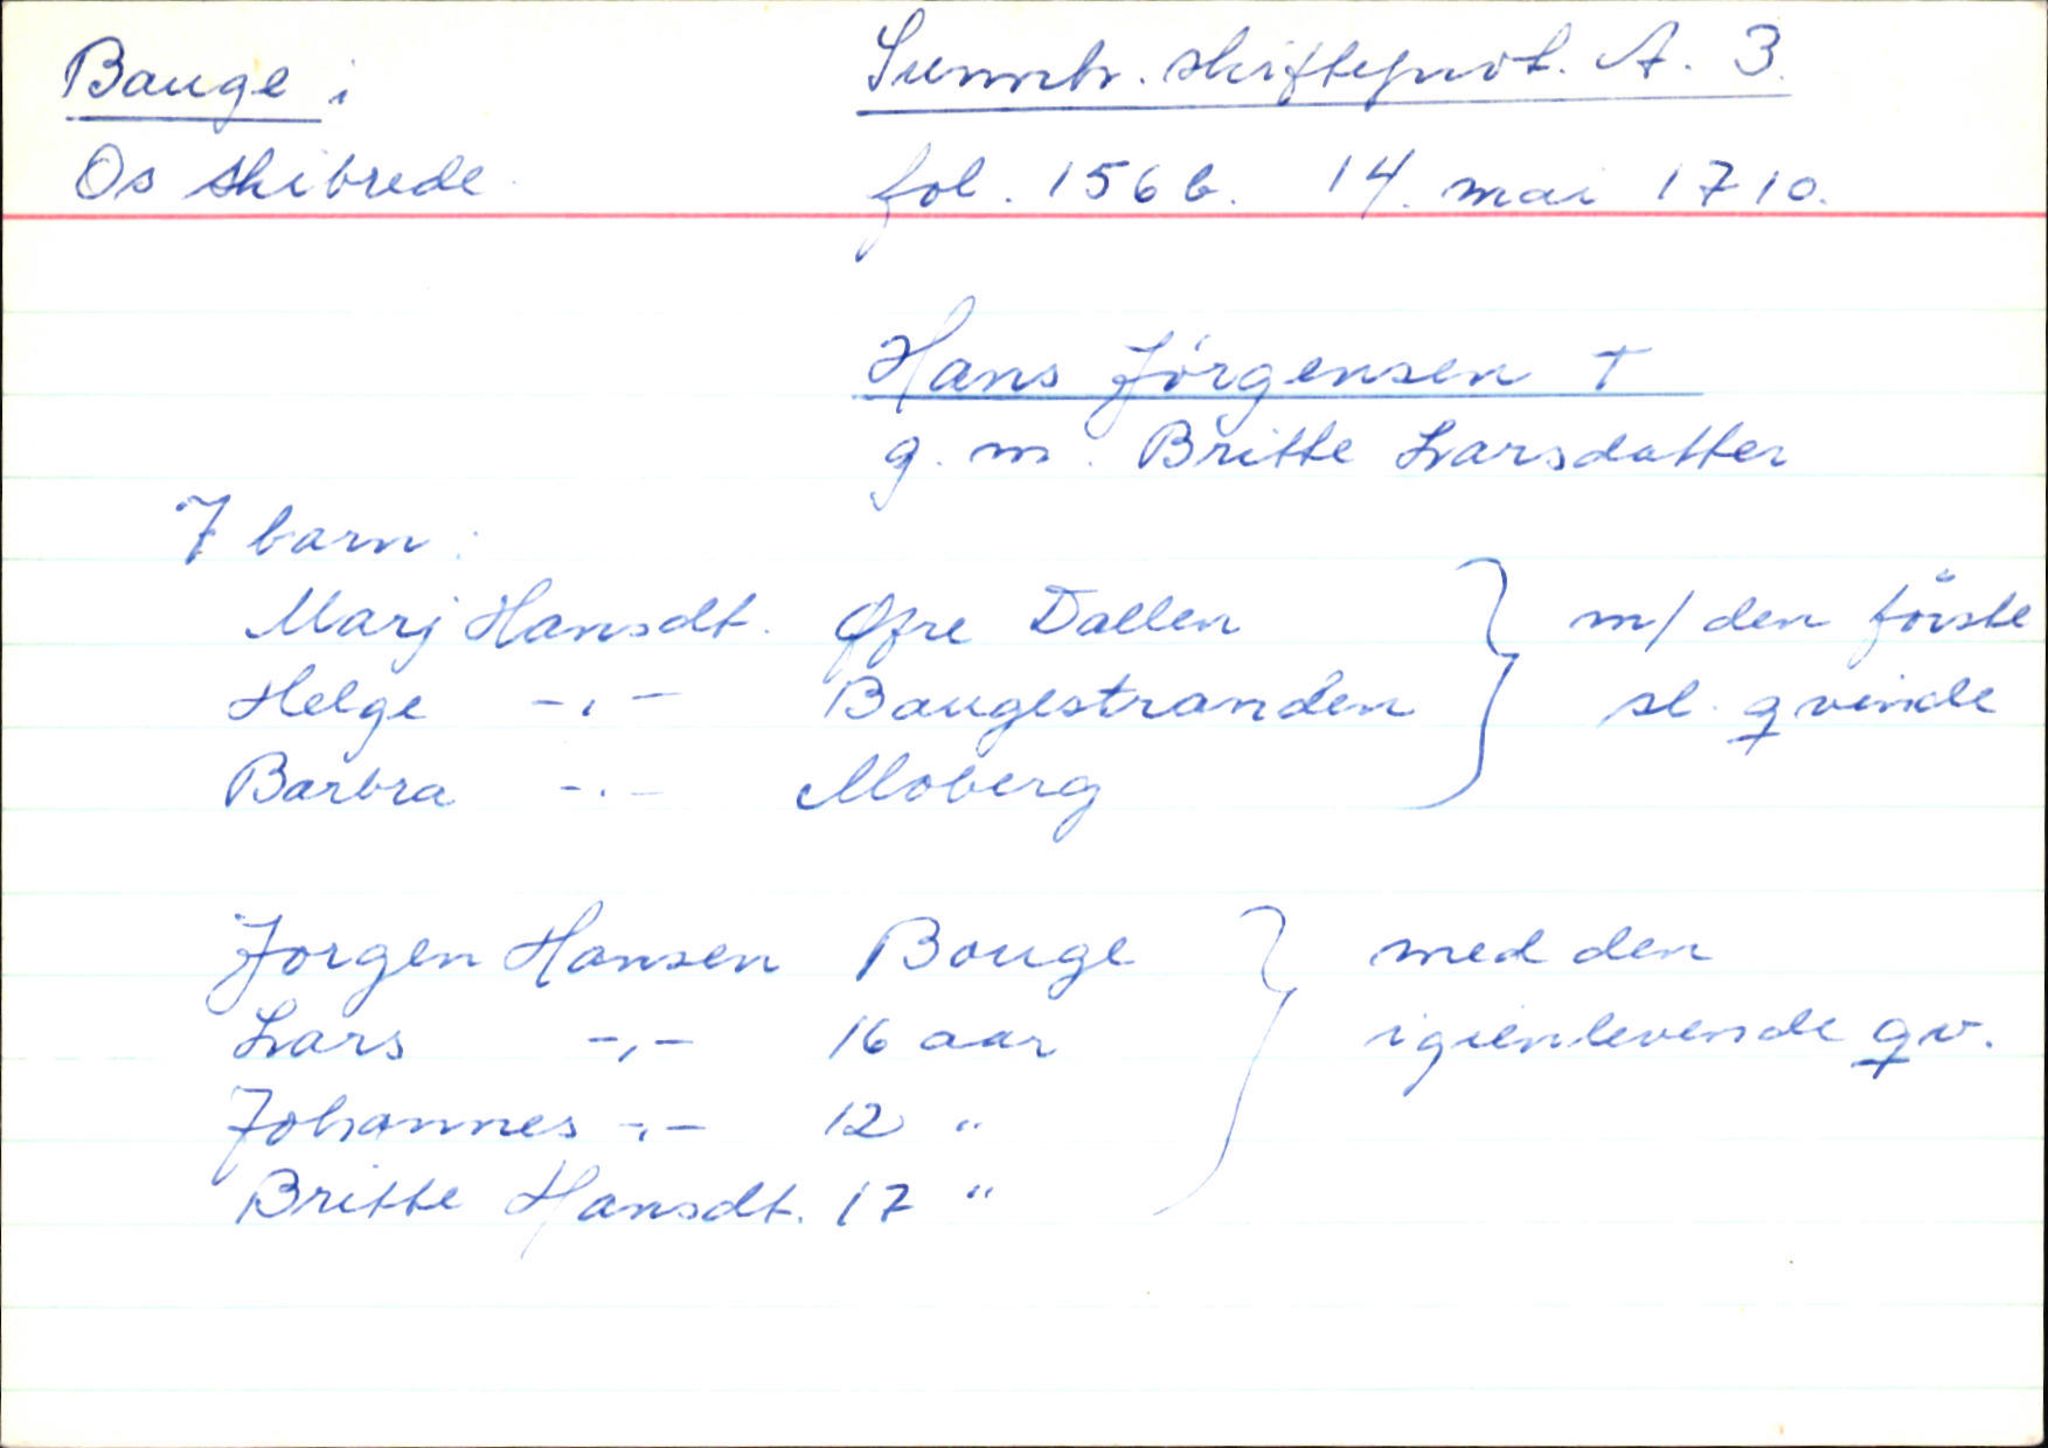 Bauge i
Os skibrede
Sunnh. skifteprot. A. 3.
fol. 156 b. 14. mai 1710.
Hans Jörgensen †
g. m. Britte Larsdatter
7 barn:
Marj Hansdt. Øfre Dallen
Helge -,- Baugestranden
Barbra -.- Moberg
m/ den förste
sl. qvinde
Jorgen Hansen Bouge
Lars -,- 16 aar
Johannes -,- 12 "
Britte Hansdt. 17 "
med den
igienlevende qv.